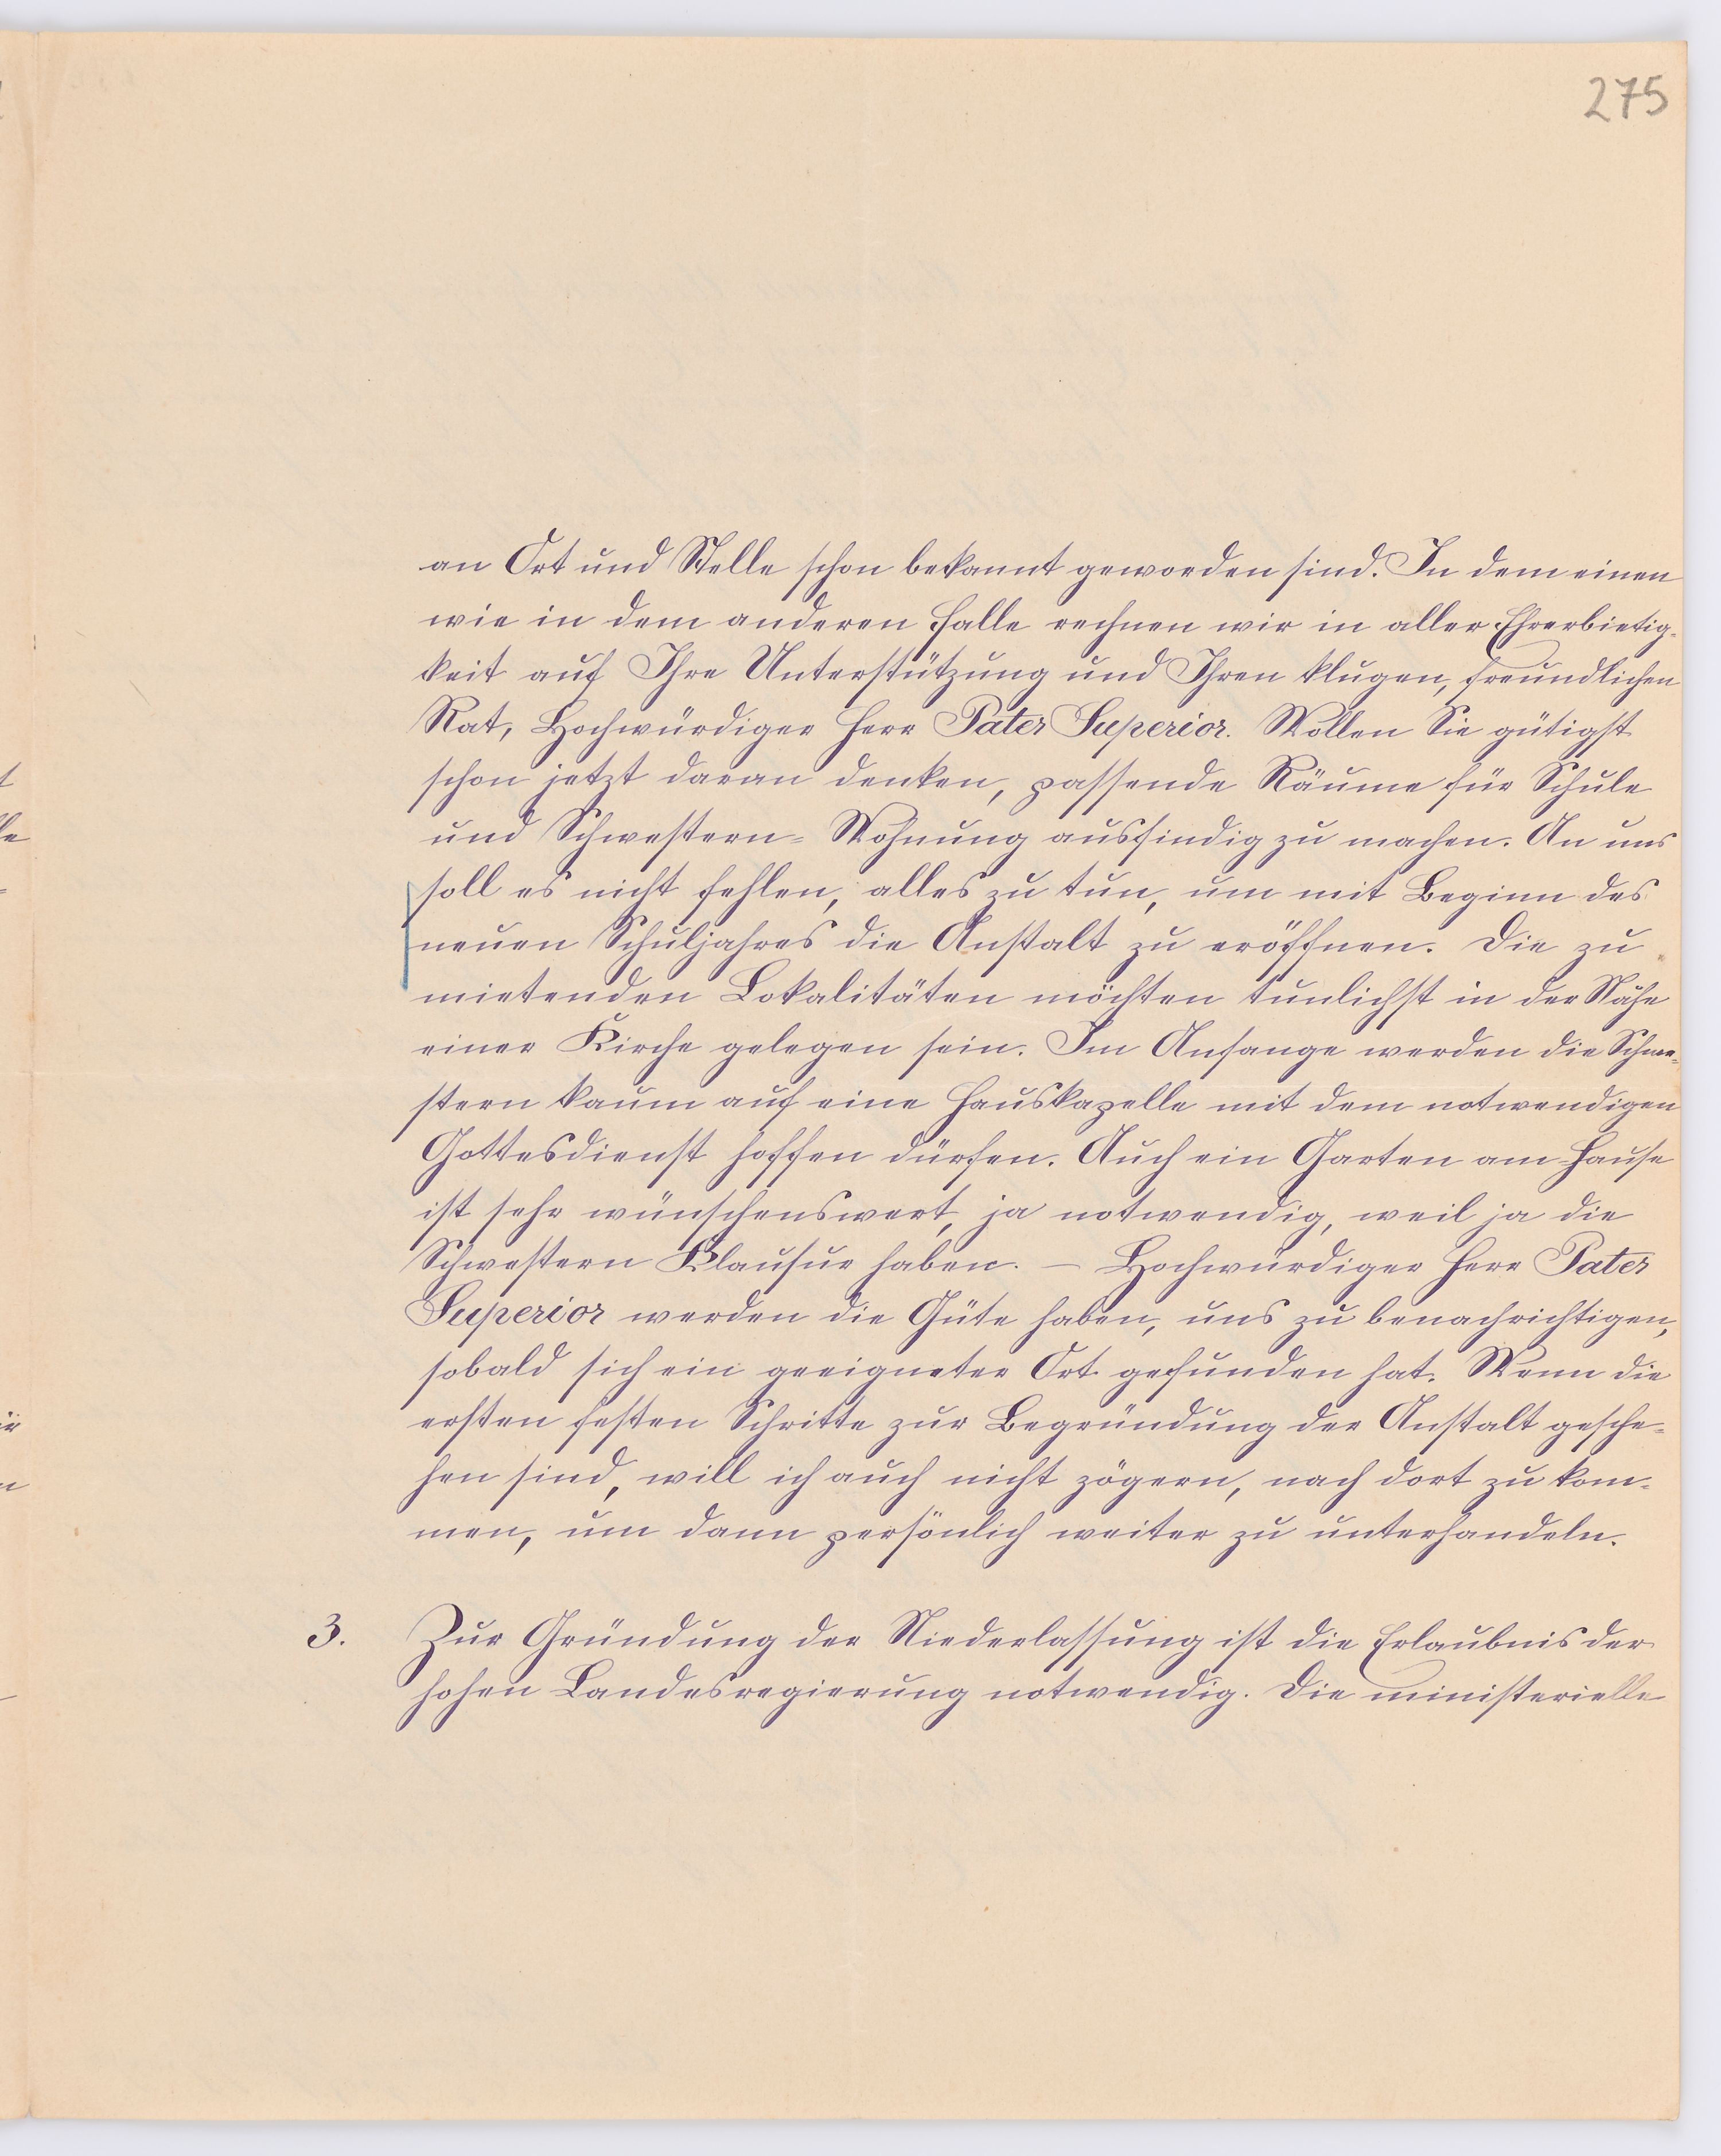 275
an Ort und Stelle schon bekannt geworden sind. In dem einen
wie in dem anderen Falle rechnen wir in aller Ehrerbietig-
keit auf Ihre Unterstützung und Ihren klugen, freundlichen
Rat, Hochwürdiger Herr Pater Superior. Wollen Sie gütigst
schon jetzt daran denken, passende Räume für Schule
und Schwestern-Wohnung ausfindig zu machen. An uns
soll es nicht fehlen, alles zu tun, um mit Beginn des
neuen Schuljahres die Anstalt zu eröffnen. Die zu
mietenden Lokalitäten möchten tunlichst in der Nähe
einer Kirche gelegen sein. Im Anfange werden die Schwe-
stern kaum auf eine Hauskapelle mit dem notwendigen
Gottesdienst hoffen dürfen. Auch ein Garten am Hause
ist sehr wünschenswert, ja notwendig, weil ja die
Schwestern Klausur haben. — Hochwürdiger Herr Pater
Superior werden die Güte haben, uns zu benachrichtigen,
sobald sich ein geeigneter Ort gefunden hat. Wenn die
ersten festen Schritte zur Begründung der Anstalt gesche-
hen sind, will ich auch nicht zögern, nach dort zu kom-
men, um dann persönlich weiter zu unterhandeln.
3. Zur Gründung der Niederlassung ist die Erlaubnis der
hohen Landesregierung notwendig. Die ministerielle